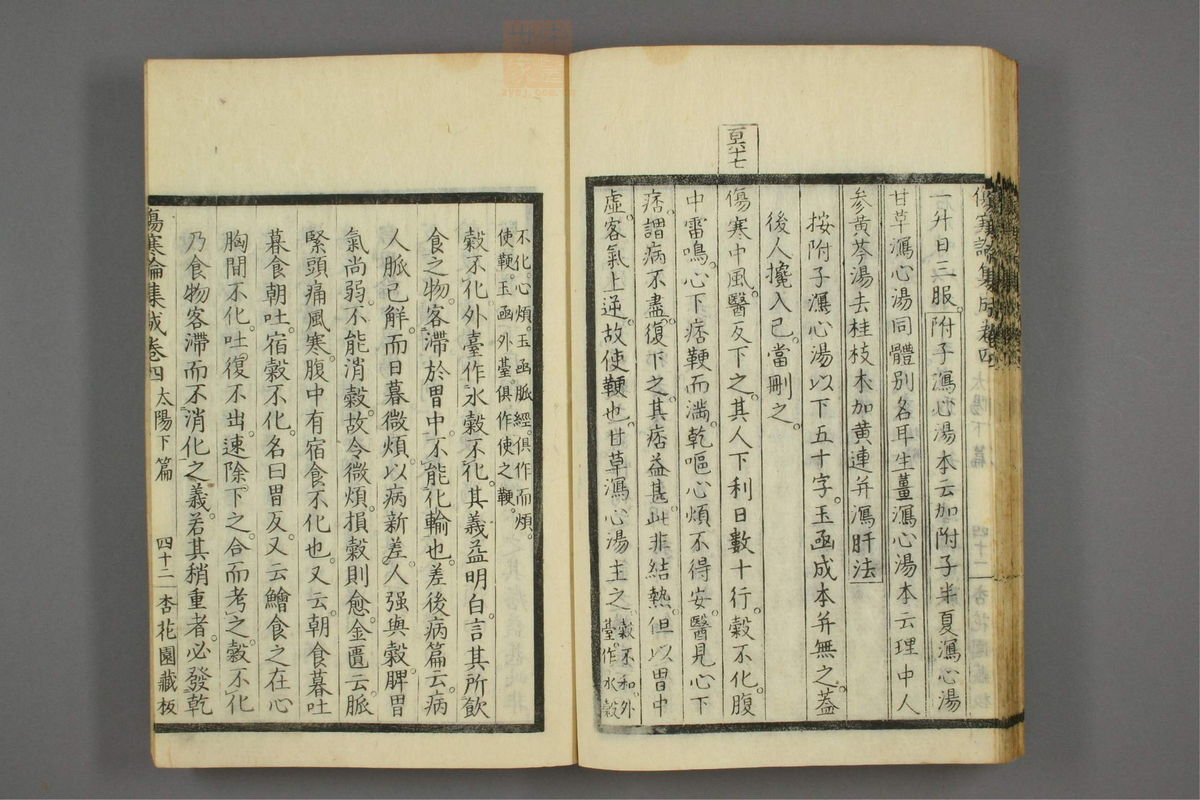 傷寒論集成卷四
一升日三服。附子瀉心湯本云加附子半夏瀉心湯
甘草瀉心湯同體別名耳生薑瀉心湯本云理中人
參黃芩湯去桂枝朮加黃連幷瀉肝法
按附子瀉心湯以下五十字。玉函成本幷無之。蓋
後人攙入已。當刪之。
百六十七
傷寒中風。醫反下之。其人下利日數十行。穀不化。腹
中雷鳴。心下痞鞕而滿。乾嘔心煩不得安。醫見心下
痞。謂病不盡。復下之。其痞益甚。此非結熱。但以胃中
虛。客氣上逆。故使鞕也。甘草瀉心湯主之。穀不和。外
臺。作水穀
不化。心煩。玉函脈經。俱作而煩。
使鞕。玉函外臺。俱作使之鞕。
穀不化。外臺作水穀不化。其義益明白。言其所飲
食之物。客滯於胃中。不能化輸也。差後病篇云。病
人脈已解。而日暮微煩。以病新差。人强與穀。脾胃
氣尚弱。不能消穀。故令微煩。損穀則愈。金匱云。脈
緊頭痛風寒。腹中有宿食不化也。又云。朝食暮吐
暮食朝吐。宿穀不化。名曰胃反。又云鱠食之在心
胸間不化。吐復不出。速除。下之。合而考之。穀不化
乃食物客滯而不消化之義。若其稍重者。必發乾
傷寒論集成卷四 太陽下篇 四十二 杏花園藏板